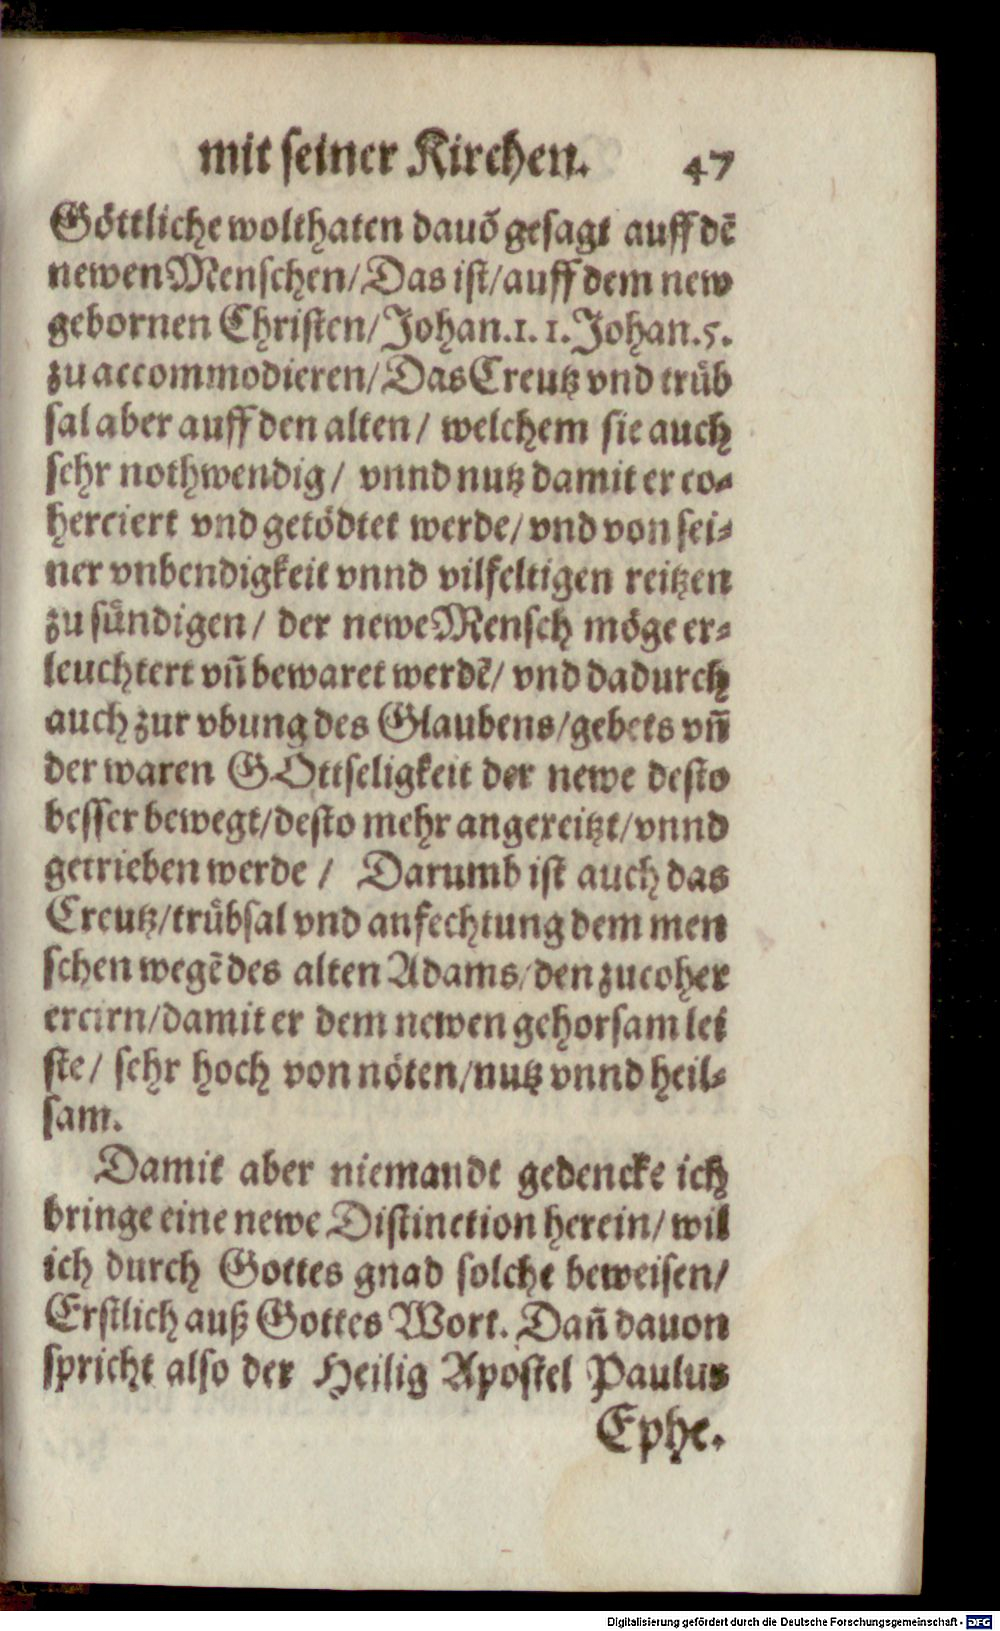 mit seiner Kirchen. 47
Göttliche wolthaten dauõ gesagt auff dẽ
newen Menschen/ Das ist/ auff dem new
gebornen Christen/ Johan.1. 1. Johan.5.
zu accommodieren/ Das Creutz vnd trüb
sal aber auff den alten/ welchem sie auch
sehr nothwendig/ vnnd nutz damit er co-
herciert vnd getödtet werde/ vnd von sei-
ner vnbendigkeit vnnd vilfeltigen reitzen
zu sündigen/ der newe Mensch möge er-
leuchtert vñ bewaret werdẽ/ vnd dadurch
auch zur vbung des Glaubens/ gebets vñ
der waren GOttseligkeit der newe desto
besser bewegt/ desto mehr angereitzt/ vnnd
getrieben werde / Darumb ist auch das
Creutz/ trübsal vnd anfechtung dem men
schen wegẽ des alten Adams/ den zucoher
ercirn/ damit er dem newen gehorsam lei
ste/ sehr hoch von nöten/ nutz vnnd heil-
sam.
Damit aber niemandt gedencke ich
bringe eine newe Distinction herein/ wil
ich durch Gottes gnad solche beweisen/
Erstlich auß Gottes Wort. Dañ dauon
spricht also der Heilig Apostel Paulus
Ephe.
Digitalisierung gefördert durch die Deutsche Forschungsgemeinschaft - DFG